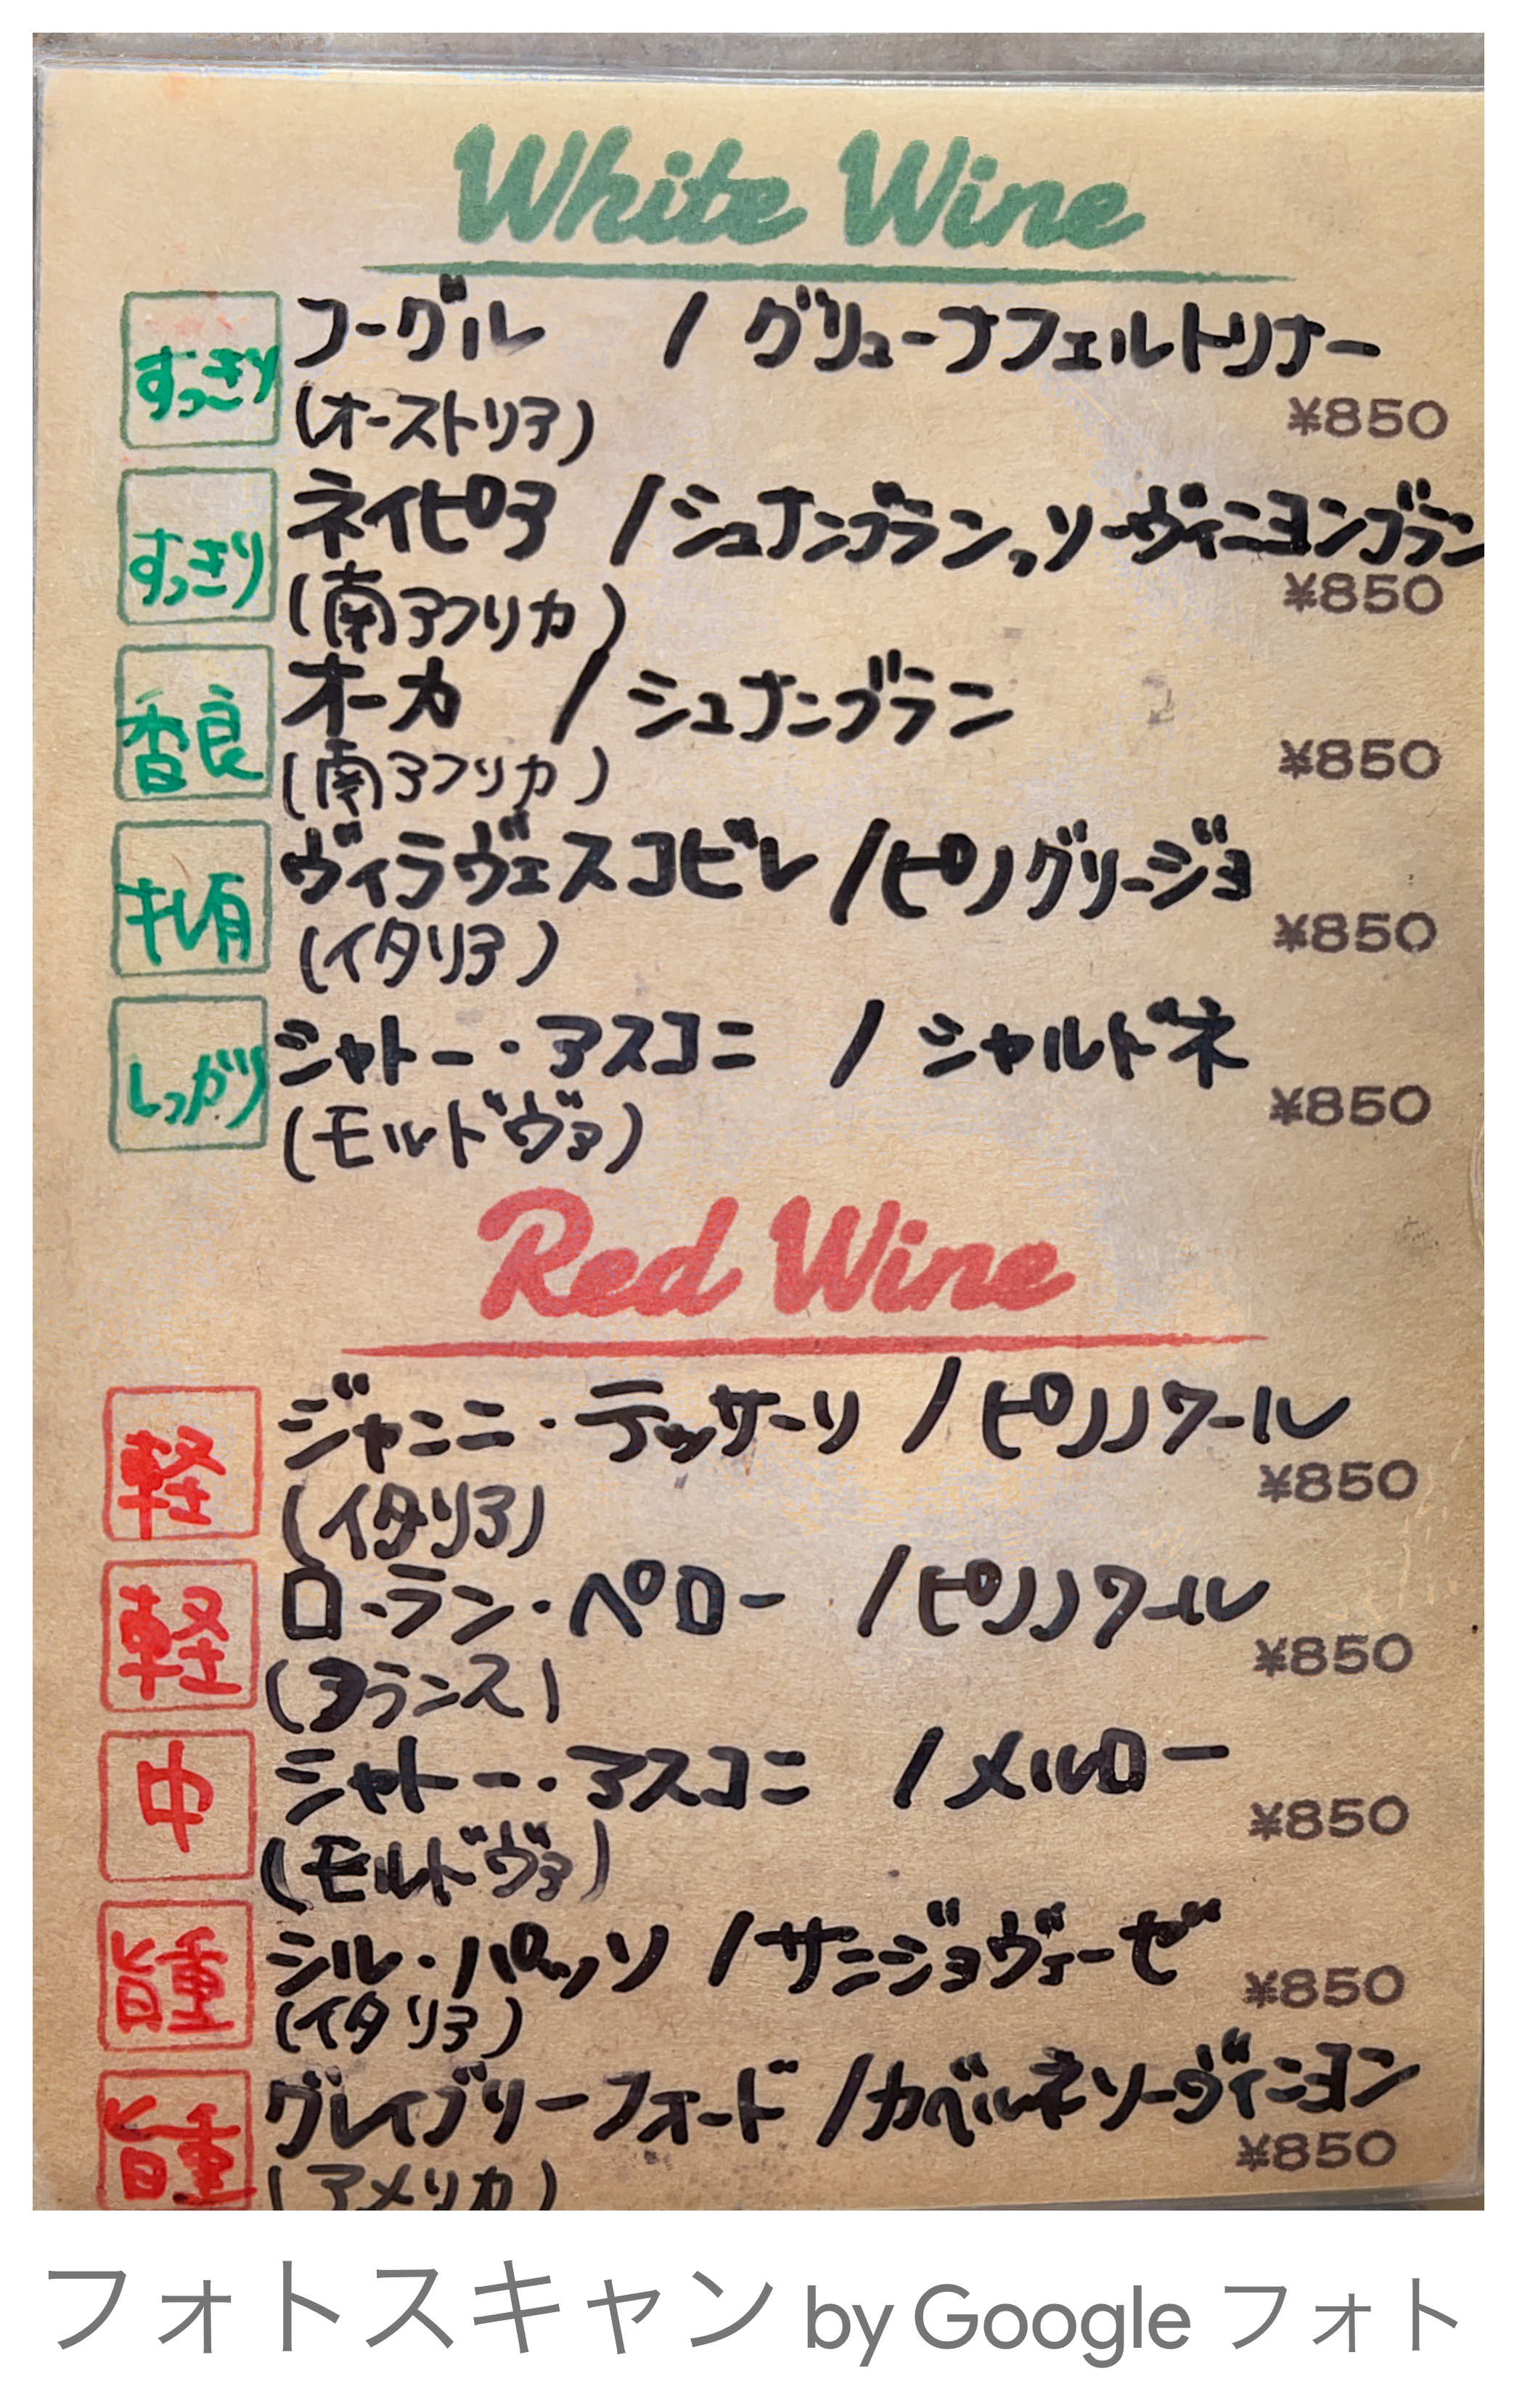 White Wine
すっきり フーグル / グリューナフェルトリナー
(オーストリア) ¥850
すっきり ネイピア / シュナンブラン,ソーヴィニヨンブラン
(南アフリカ) ¥850
香良 オーカ / シュナンブラン
(南アフリカ) ¥850
キレ有 ヴィラヴェスコビレ / ピノグリージョ
(イタリア) ¥850
しっかり シャトー・アスコニ / シャルドネ
(モルドヴァ) ¥850
Red Wine
軽 ジャンニ・テッサーリ / ピノノワール
(イタリア) ¥850
軽 ローラン・ペロー / ピノノワール
(フランス) ¥850
中 シャトー・アスコニ / メルロー
(モルドヴァ) ¥850
旨重 シル・パッソ / サンジョヴェーゼ
(イタリア) ¥850
旨重 グレイブリーフォード / カベルネソーヴィニヨン
(アメリカ) ¥850
フォトスキャン by Google フォト